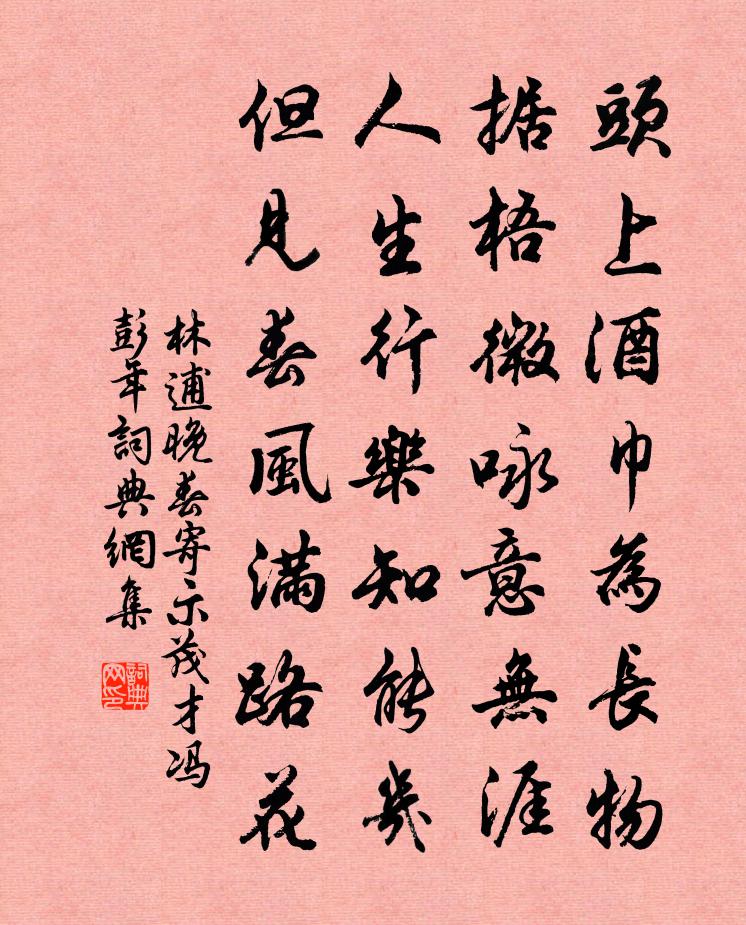 頭上酒巾為長物
据梧微咏意無涯
人生行樂知能幾
但見春風滿路花
林逋晚春寄示茂才冯
彭年詞典網集
詞典网印